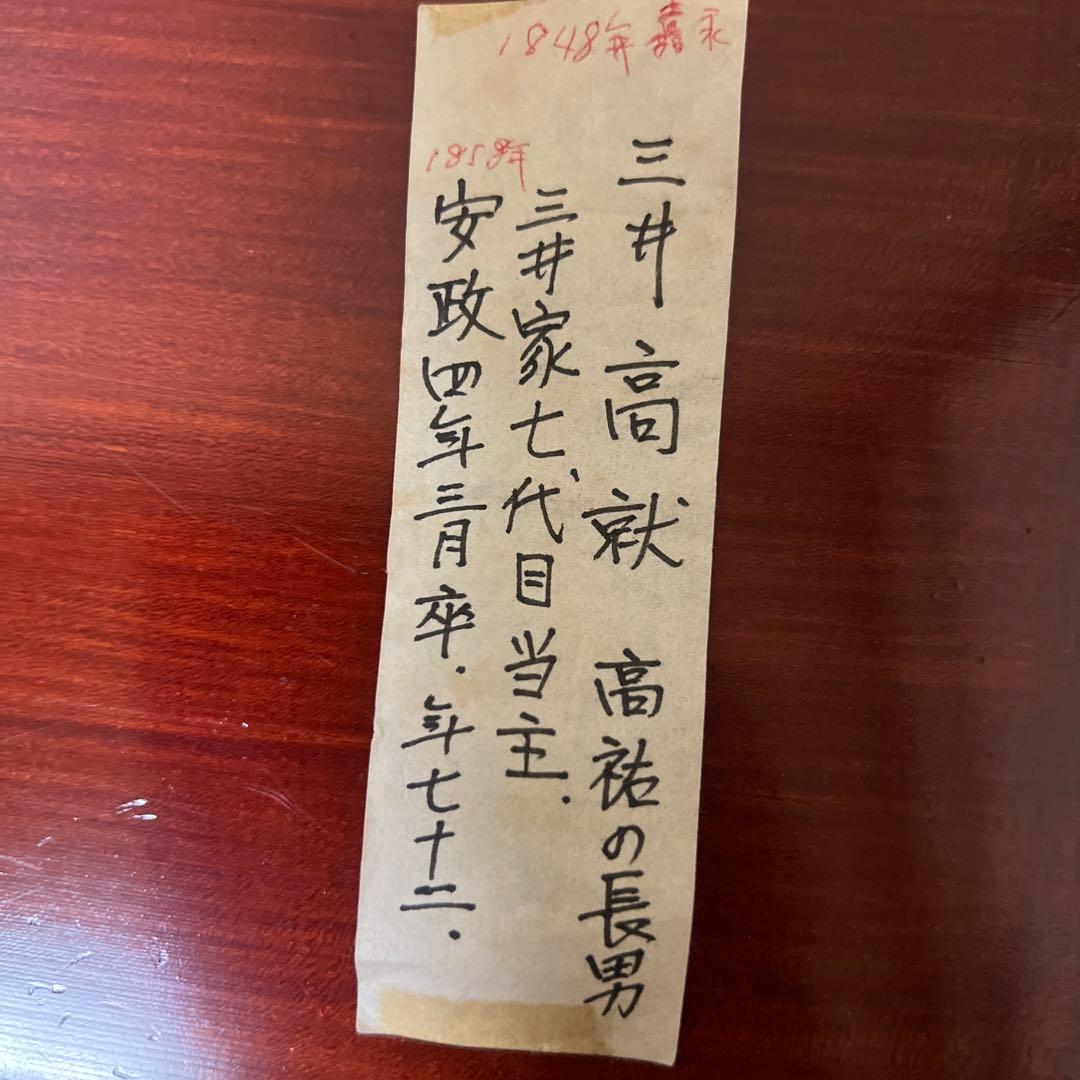 1848年嘉永
三井高就 高祐の長男
三井家七代目当主.
1858年
安政四年三月卒.年七十二.